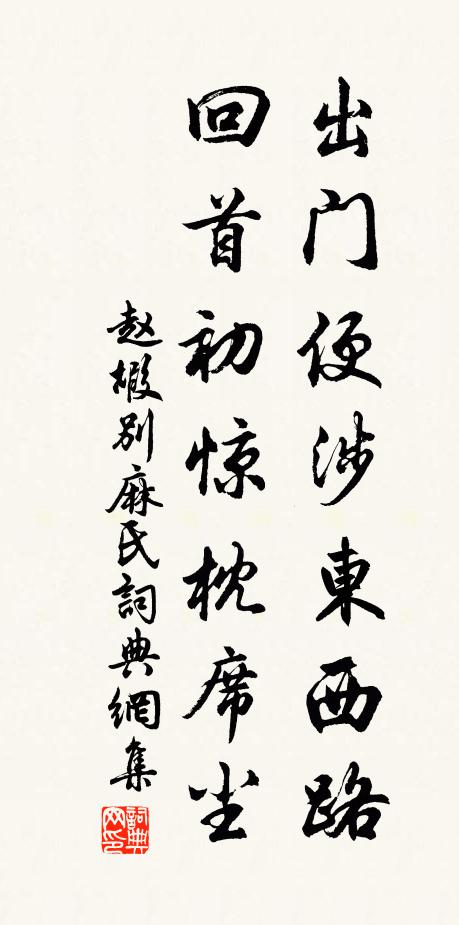 出门便涉東西路
回首初惊枕席尘
赵嘏别麻氏詞典網集
詞典网印